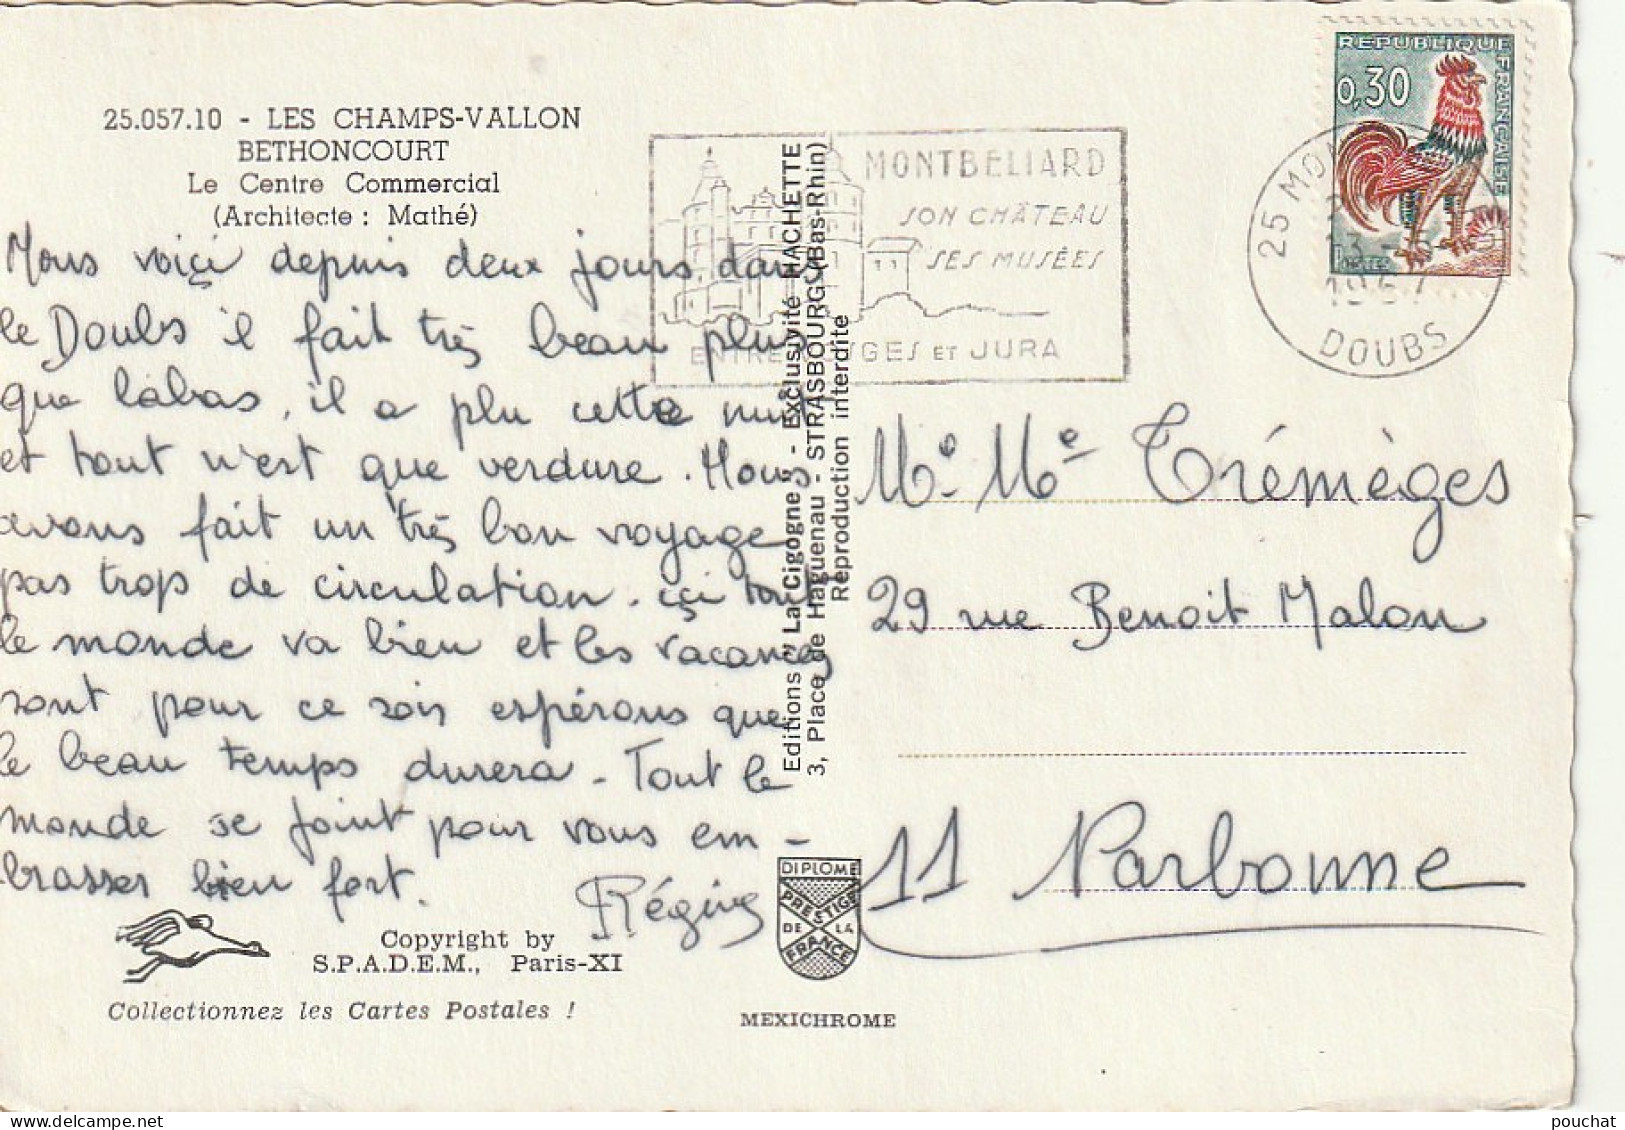 25.057.10 - LES CHAMPS-VALLON
BETHONCOURT
Le Centre Commercial
(Architecte : Mathé)
Nous voiçi depuis deux jours dans
le Doubs il fait très beau plus
que labas, il a plu cette nuit
et tout n'est que verdure. Nous
avons fait un très bon voyage
pas trop de circulation. içi tout
le monde va bien et les vacances
sont pour ce sois espérons que
le beau temps durera - Tout le
monde se joint pour vous em-
brasser bien fort.
Copyright by
S.P.A.D.E.M., Paris-XI
Collectionnez les Cartes Postales !
Editions "La Cigogne" - Exclusivité HACHETTE
3, Place de Haguenau - STRASBOURG (Bas-Rhin)
Reproduction interdite
DIPLOME
PRESTIGE
DE LA
FRANCE
MEXICHROME
MONTBELIARD
SON CHÂTEAU
SES MUSÉES
ENTRE VOSGES ET JURA
REPUBLIQUE FRANÇAISE
0,30
POSTES
25 MON
1967
DOUBS
Mr. Me Trémèges
29 rue Benoit Malon
11 Narbonne
pouchat